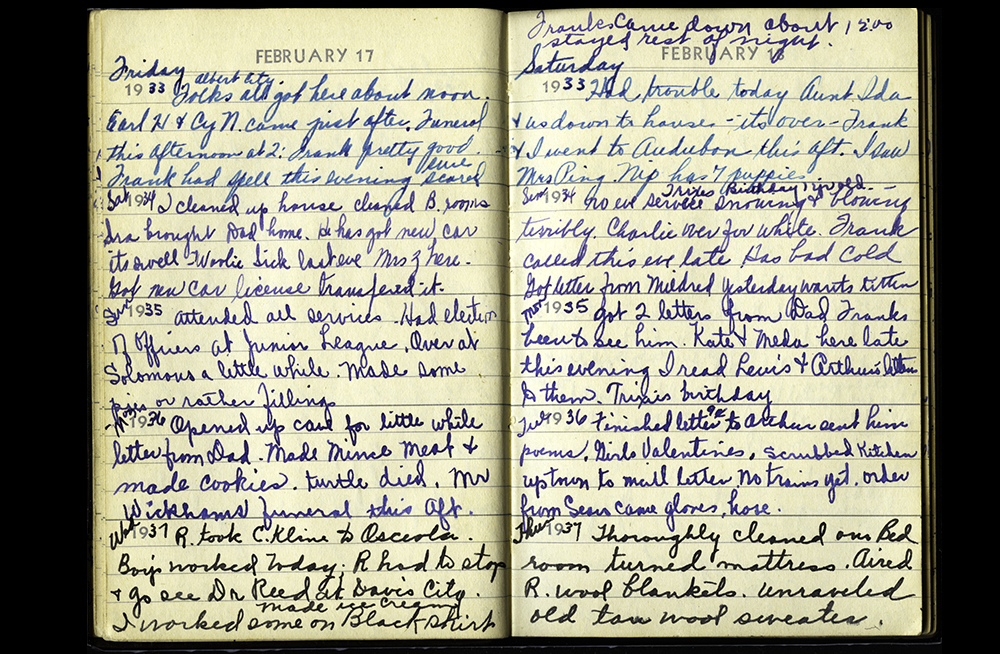 FEBRUARY 17
Friday
albert City
1933 Folks all got here about noon.
Earl H & Cy N. came just after. Funeral
this afternoon at 2: Frank pretty good
Frank had spell this evening scared
Sat 1934 I cleaned up house cleaned B. rooms
Ira brought Dad home. He has got new car
its swell Woolie Sick last eve Mrs Z here.
Got new car license transfered it.
Sun 1935 attended all services. Had election
of Officers at Junior League. Over at
Solomons a little while. Made some
pies or rather filling
1936 Opened up can for little while
letter from Dad. Made Mince Meat &
made cookies. turtle died. Mr
Wickhams funeral this Aft.
Wed 1937 R. took C. Kline to Osceola.
Boys worked today. R had to stop
& go see Dr Reed at Davis City.
made ice cream
I worked some on Black skirt
Franks came down about 12:00
stayed rest of night.
FEBRUARY 18
Saturday
1933 Had trouble today Aunt Ida
& us down to house - its over - Frank
& I went to Audubon this aft. I saw
Mrs Ping. Nip has 7 puppies
Trixes Birthday, old.
Sun 1934 no eve service Snowing & blowing
terribly. Charlie over for white. Frank
called this eve late Has bad cold
Got letter from Mildred yesterday wants kitten
Mon 1935 got 2 letters from Dad Franks
been to see him. Kate & Meda here late
this evening I read Lewis & Arthurs letters
to them. Trixies birthday
Tue 1936 Finished letter to Arthur sent him
poems, Girls Valentines, Scrubbed Kitchen
uptown to mail letter. No trains yet. order
from Sears came gloves, hose.
Thur 1937 Thoroughly cleaned our Bed
room turned mattress. Aired
R. wool blankets. unraveled
old tan wool sweater.